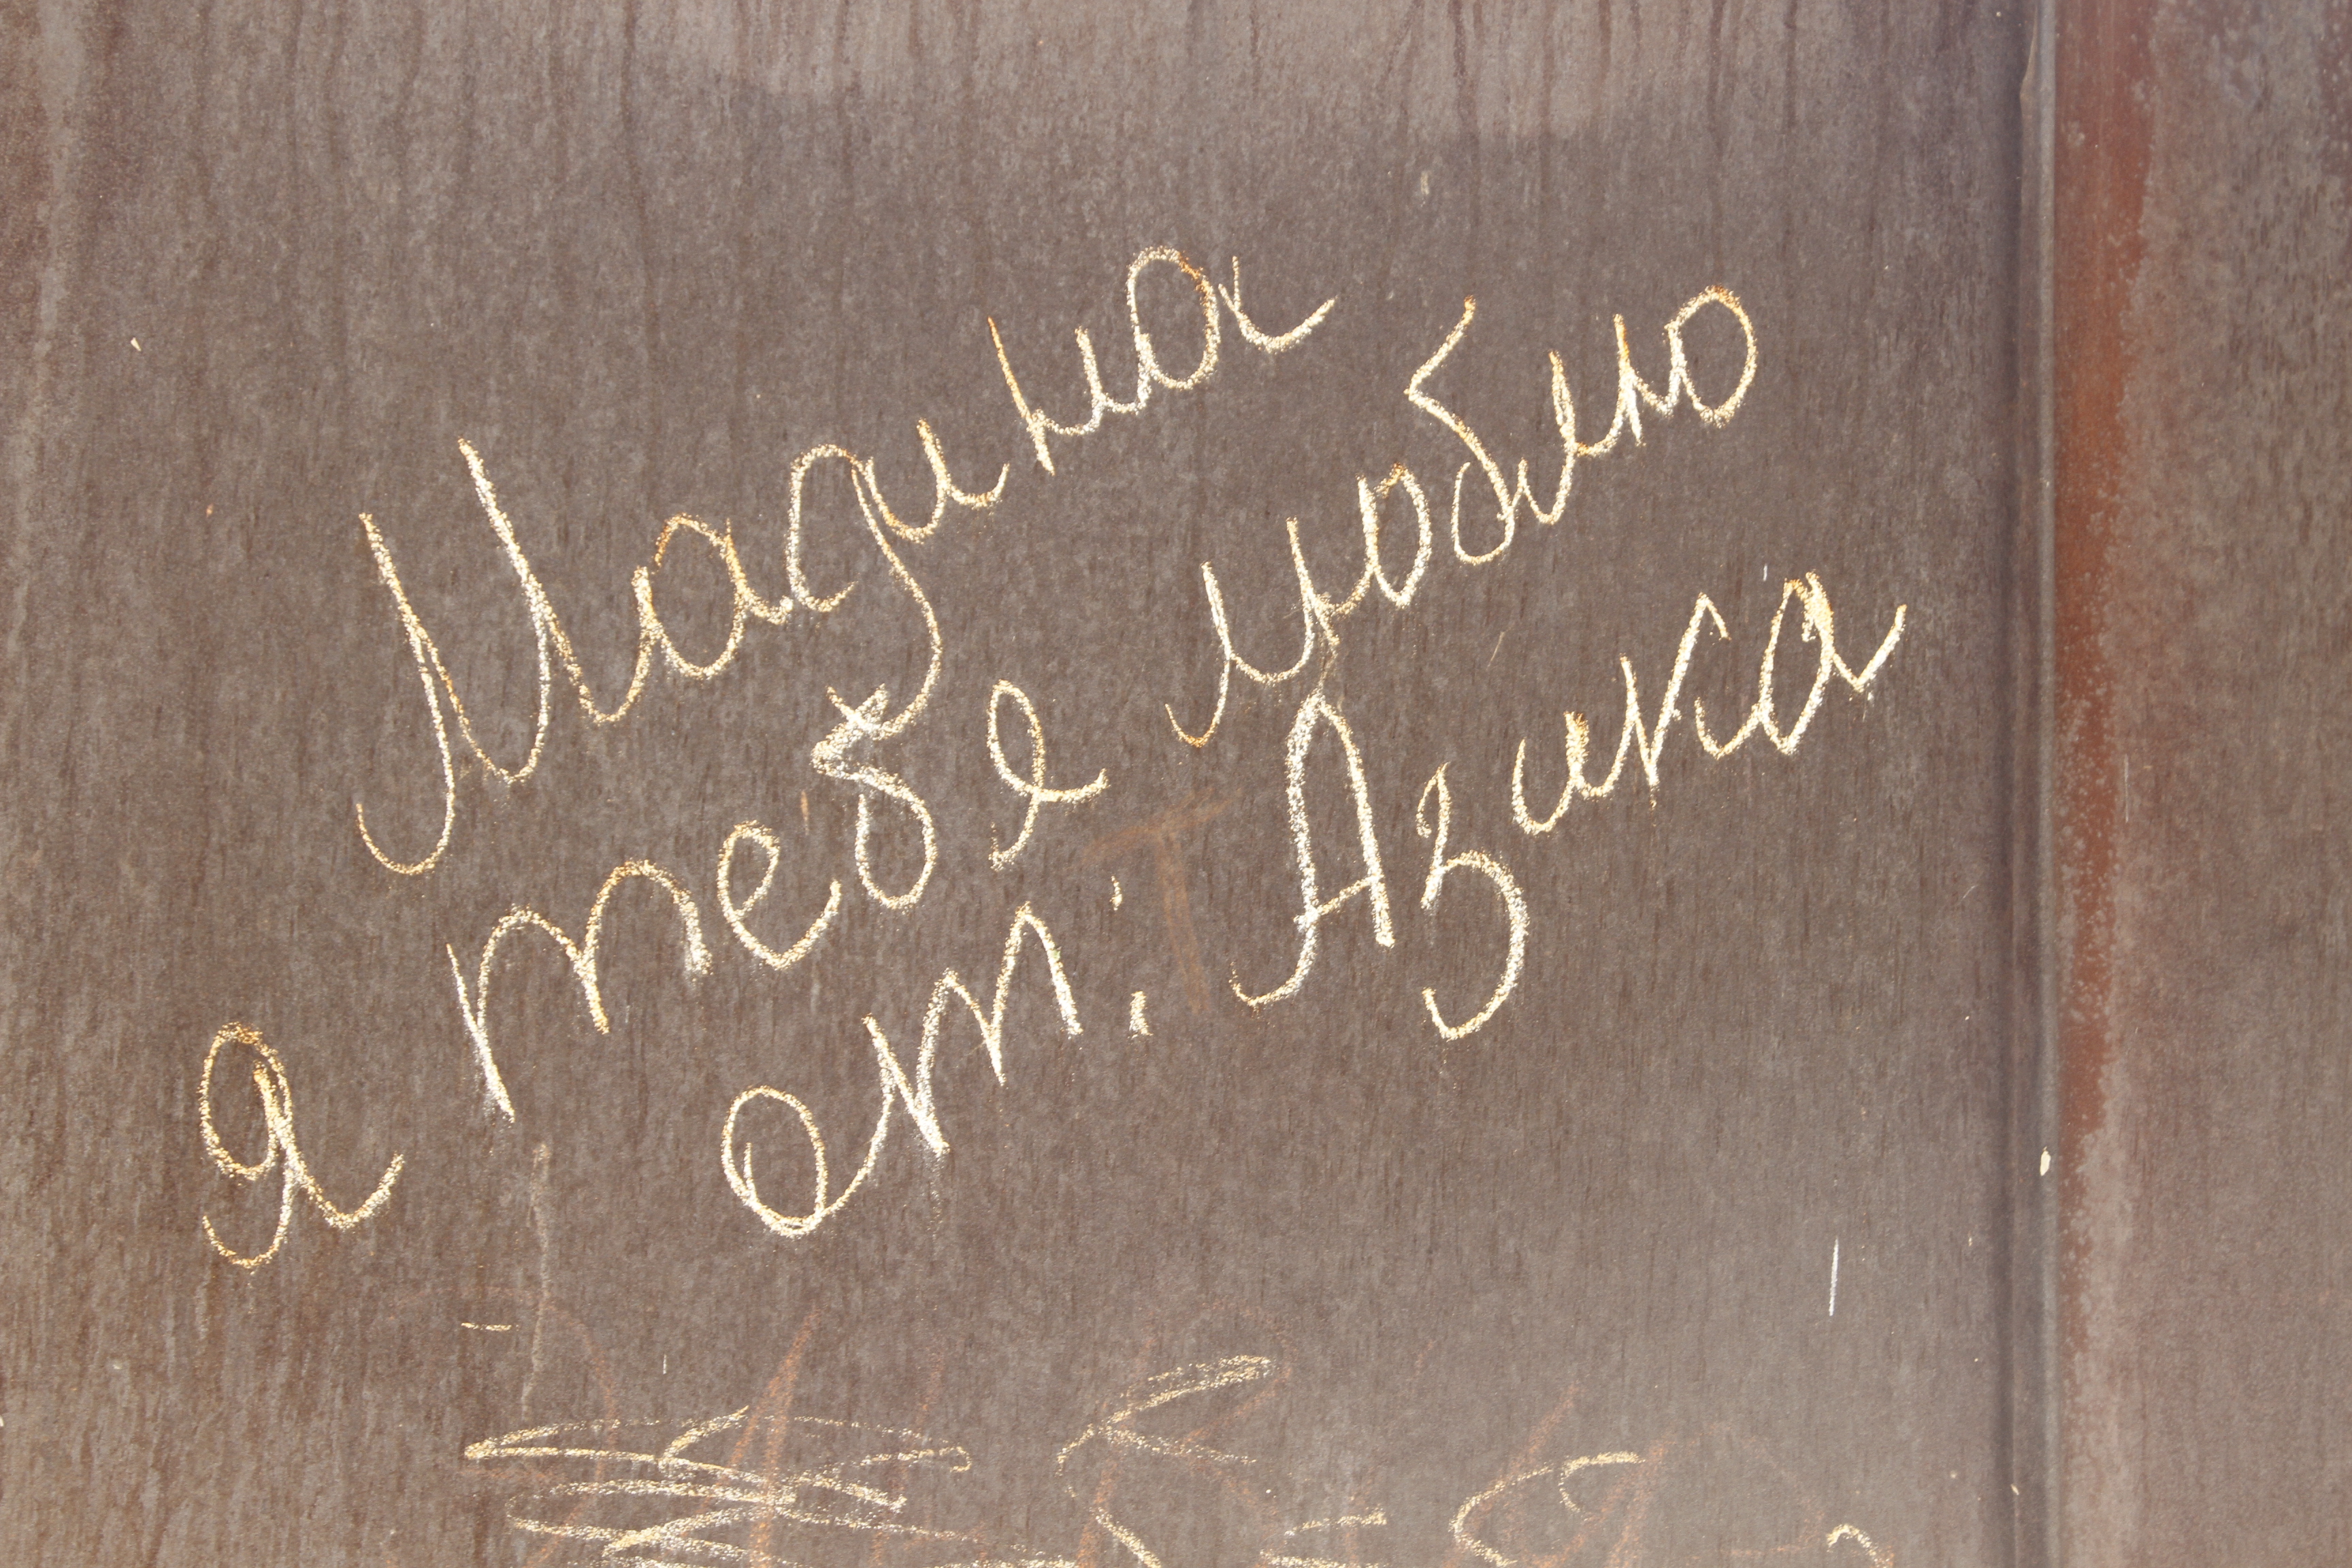 Мадина
я тебе люблю
от: Азика